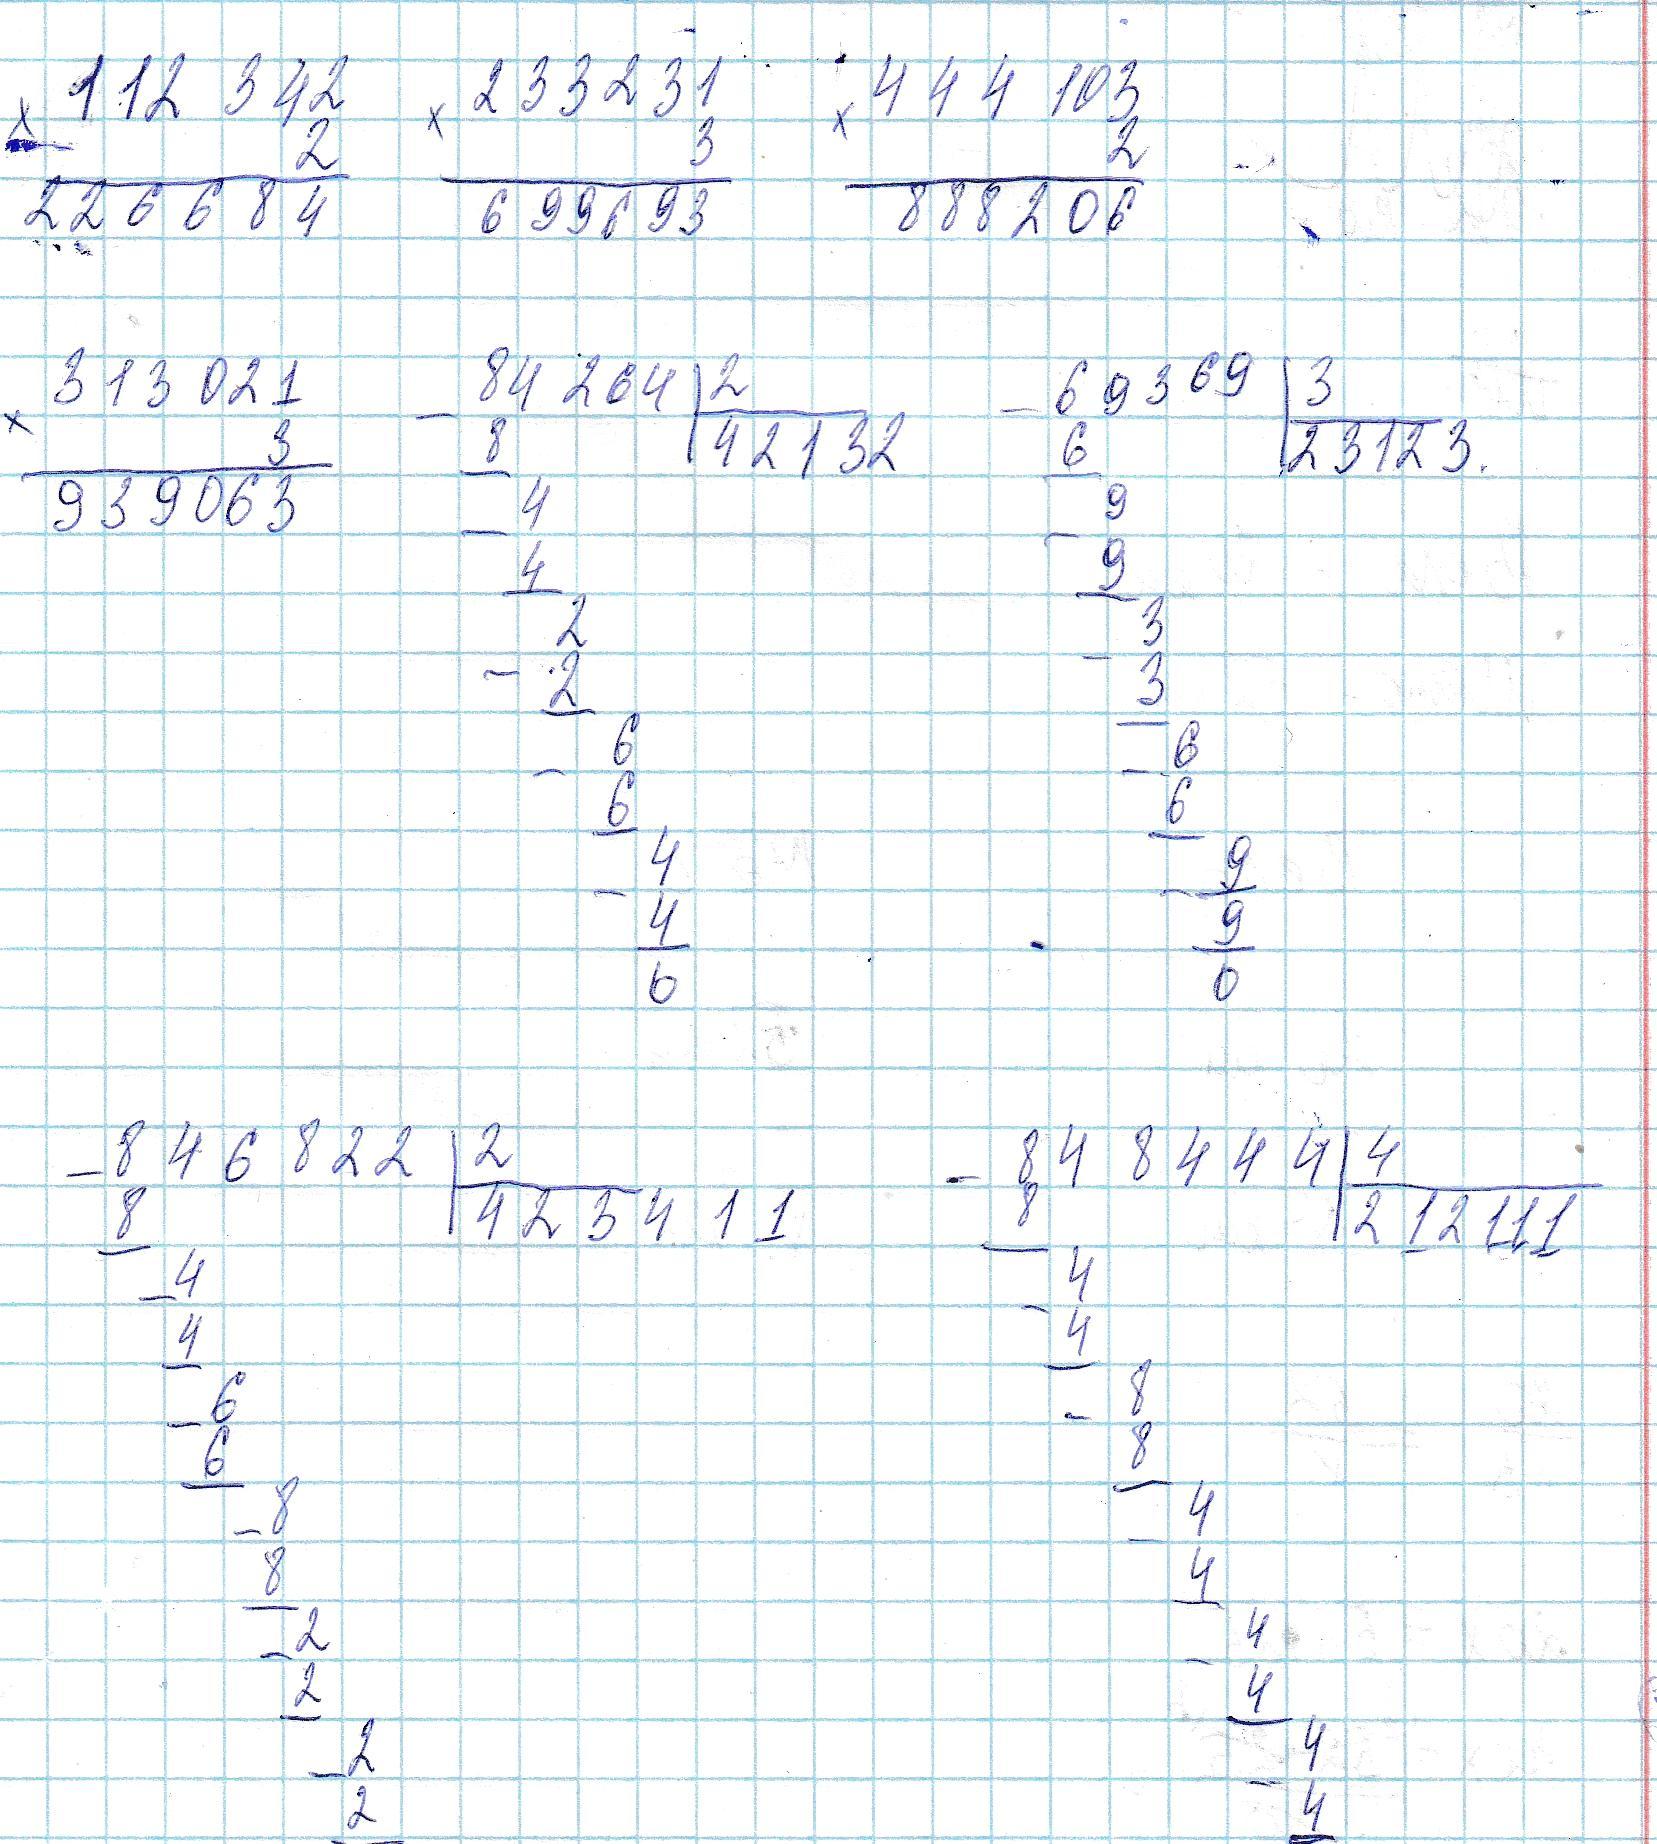 × 112 342 × 233231 × 444 103
2 3 2
226684 699693 888206
× 313 021 - 84 264 | 2 - 69369 | 3
3 8 42132 6 23123.
939063 4 9
- 4 - 9
2 3
- 2 - 3
6 6
- 6 - 6
4 9
- 4 - 9
0 0
- 846 822 | 2 - 84 8444 | 4
8 423411 8 212111
- 4 4
4 - 4
- 6 8
6 - 8
- 8 4
8 - 4
- 2 4
2 - 4
- 2 4
2 - 4